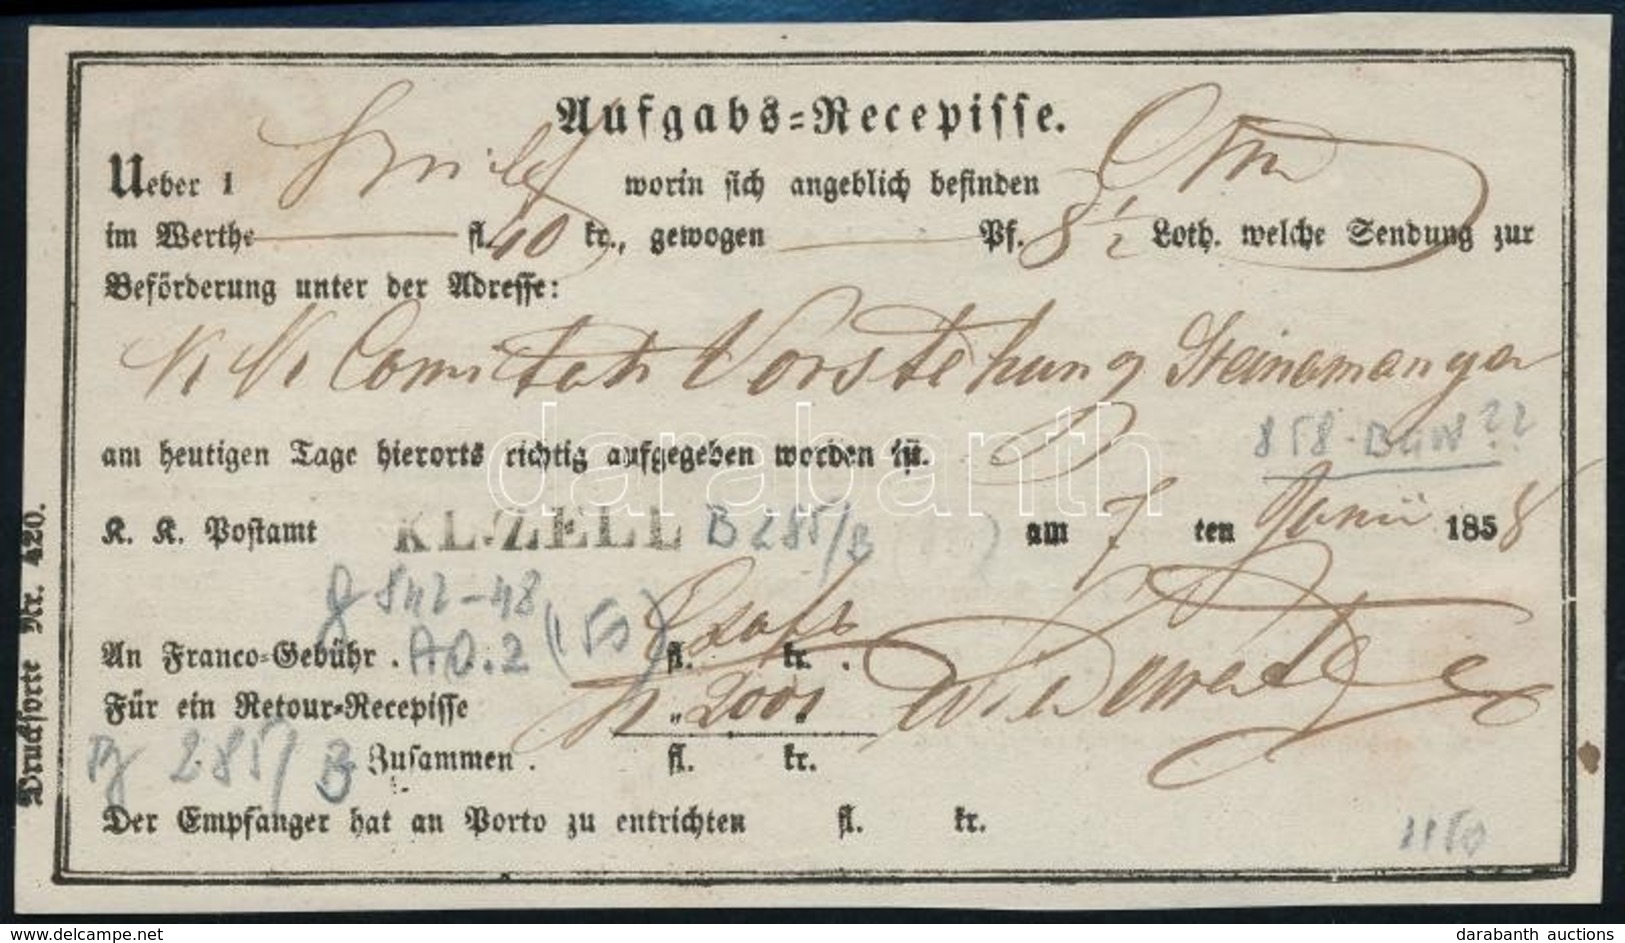 Aufgabs=Recepisse.
Ueber 1 worin sich angeblich befinden
im Werthe fl. 40 kr., gewogen Pf. 8 1/2 Loth. welche Sendung zur
Beförderung unter der Adresse:
K K Comitats Vorstehung Steinamanger
858-BGW??
am heutigen Tage hierorts richtig aufgegeben worden ist.
K. K. Postamt KL.ZELL B 285/B am 7 ten Junii 1858
g 842-48
An Franco=Gebühr . AO.2 (150) fl. kr. .
Für ein Retour=Recepisse " 2001 "
285/B Zusammen . fl. kr.
Der Empfänger hat an Porto zu entrichten fl. kr.
1150
Drucksorte Nr. 420.
darabanth
www.delcampe.net
darabanth auctions